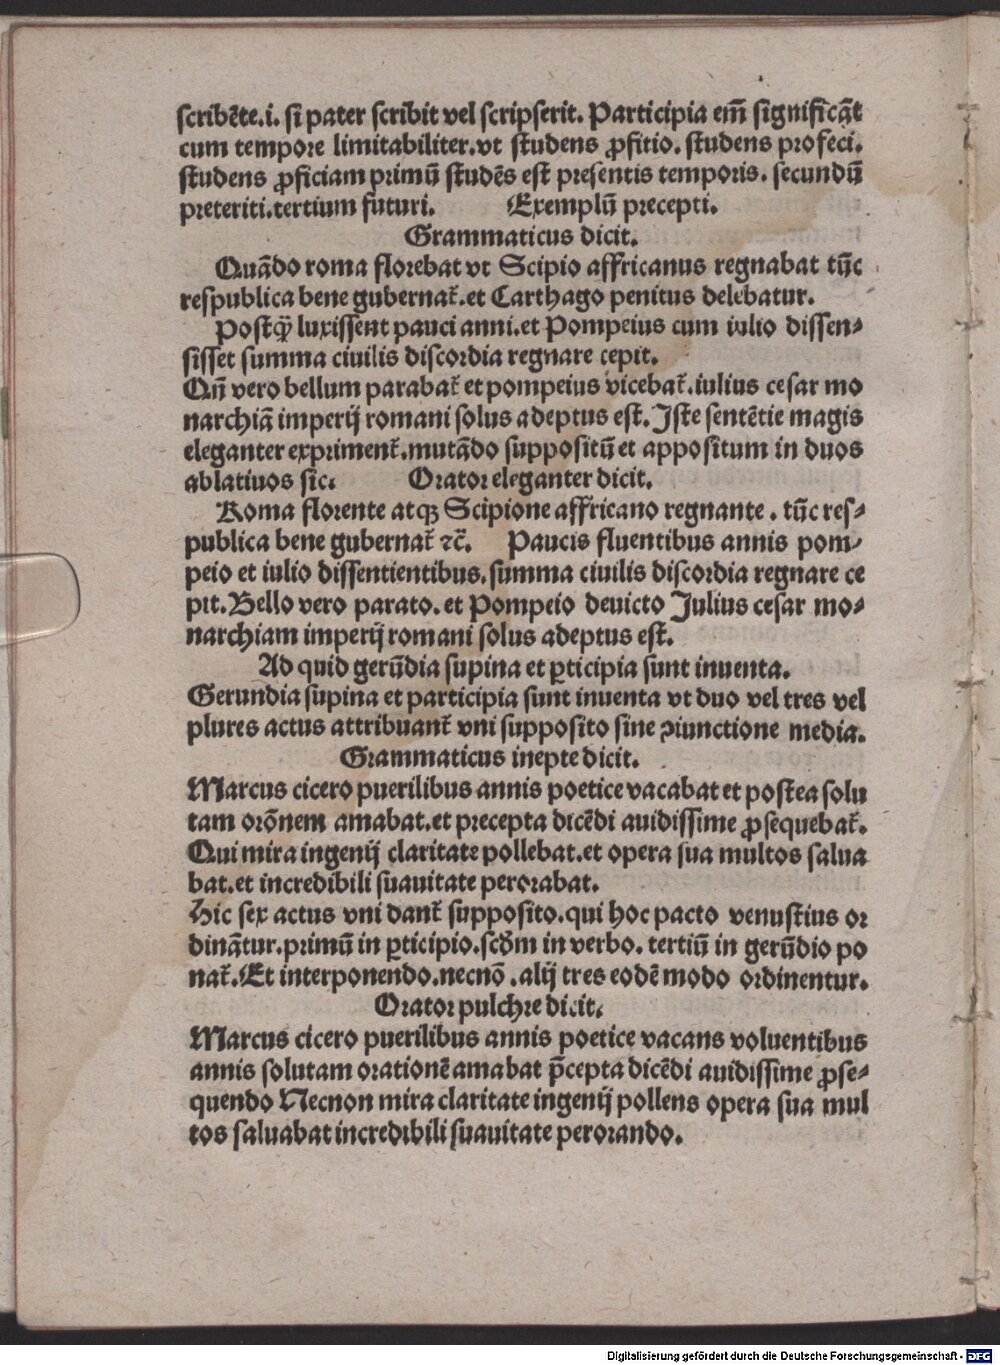 scribēte.i. si pater scribit vel scripserit. Participia em̄ significāt
cum tempore limitabiliter.vt studens ꝓfitio. studens profeci.
studens ꝓficiam primū studēs est presentis temporis. secundū
preteriti.tertium futuri. Exemplū precepti.
Grammaticus dicit.
Quādo roma florebat vt Scipio affricanus regnabat tūc
respublica bene gubernat̄.et Carthago penitus delebatur.
Postq̄ luxissent pauci anni.et Pompeius cum iulio dissen⸗
sisset summa ciuilis discordia regnare cepit.
Qn̄ vero bellum parabat̄ et pompeius vicebat̄.iulius cesar mo
narchiā imperij romani solus adeptus est. Iste sentētie magis
eleganter expriment̄.mutādo suppositū et appositum in duos
ablatiuos sic. Orator eleganter dicit.
Roma florente atqꝫ Scipione affricano regnante . tūc res⸗
publica bene gubernat̄ ⁊c̄. Paucis fluentibus annis pom⸗
peio et iulio dissentientibus.summa ciuilis discordia regnare ce
pit. Bello vero parato. et Pompeio deuicto Julius cesar mo⸗
narchiam imperij romani solus adeptus est.
Ad quid gerūdia supina et ꝑticipia sunt inuenta.
Gerundia supina et participia sunt inuenta vt duo vel tres vel
plures actus attribuant̄ vni supposito sine ꝯiunctione media.
Grammaticus inepte dicit.
Marcus cicero puerilibus annis poetice vacabat et postea solu
tam orōnem amabat.et precepta dicēdi auidissime ꝓsequebat̄.
Qui mira ingenij claritate pollebat.et opera sua multos salua
bat.et incredibili suauitate perorabat.
Hic sex actus vni dant̄ supposito.qui hoc pacto venustius or
dināt̄ur.primū in ꝑticipio.scd̄m in verbo. tertiū in gerūdio po
nat̄. Et interponendo.necnō .alij tres eodē modo ordinentur.
Orator pulchre dicit.
Marcus cicero puerilibus annis poetice vacans voluentibus
annis solutam orationē amabat p̄cepta dicēdi auidissime ꝓse⸗
quendo Necnon mira claritate ingenij pollens opera sua mul
tos saluabat incredibili suauitate perorando.
Digitalisierung gefördert durch die Deutsche Forschungsgemeinschaft - DFG